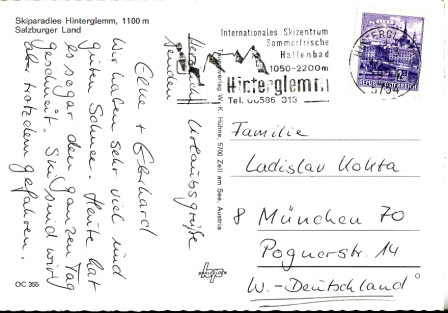 Skiparadies Hinterglemm, 1100 m
Salzburger Land
Herzliche Urlaubsgrüße
senden
Elke + Eberhard
Wir haben sehr viel und
guten Schnee. Heute hat
es sogar den ganzen Tag
geschneit. Ski sind wir
aber trotzdem gefahren.
OC 355
Verlag W. K. Hühne, 5700 Zell am See, Austria
Internationales Skizentrum
Sommerfrische
Hallenbad
1050-2200m
Hinterglemm
Tel. 06586 313
Familie
Ladislav Kokta
8 München 70
Pognerstr. 14
W.-Deutschland